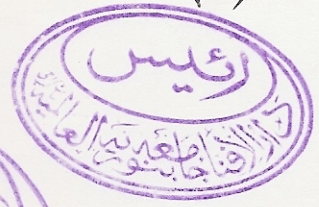 رئيس
دار الافتا جامعہ بنوریہ العالمیہ